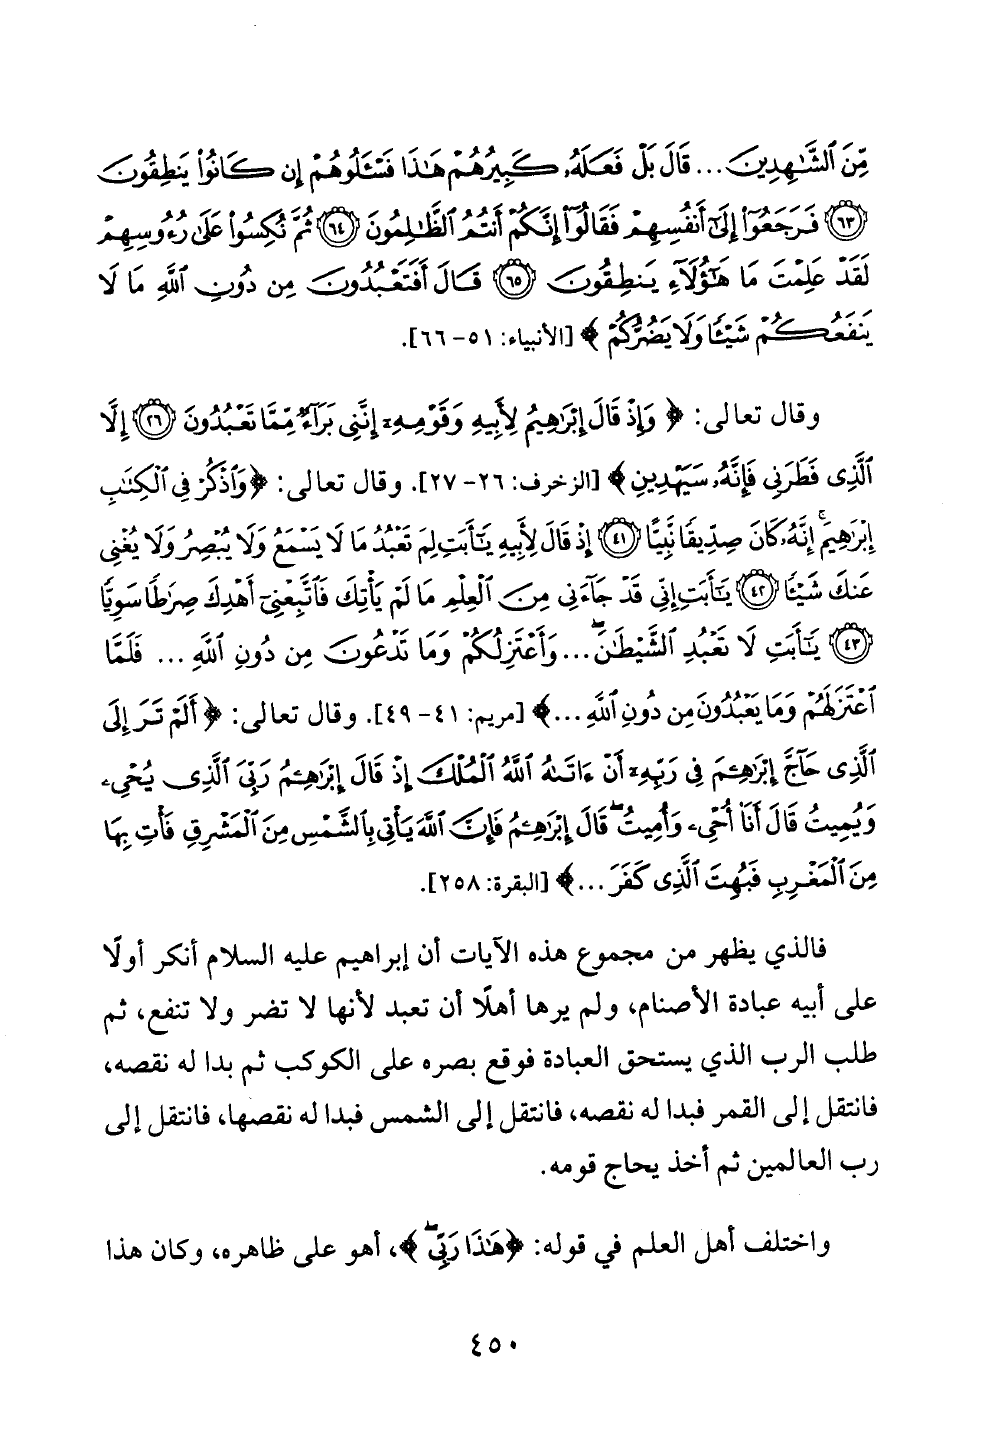 مِّنَ ٱلشَّـٰهِدِينَ... قَالَ بَلْ فَعَلَهُۥ كَبِيرُهُمْ هَـٰذَا فَسْـَٔلُوهُمْ إِن كَانُوا۟ يَنطِقُونَ
﴿٦٣﴾ فَرَجَعُوٓا۟ إِلَىٰٓ أَنفُسِهِمْ فَقَالُوٓا۟ إِنَّكُمْ أَنتُمُ ٱلظَّـٰلِمُونَ ﴿٦٤﴾ ثُمَّ نُكِسُوا۟ عَلَىٰ رُءُوسِهِمْ
لَقَدْ عَلِمْتَ مَا هَـٰٓؤُلَآءِ يَنطِقُونَ ﴿٦٥﴾ قَالَ أَفَتَعْبُدُونَ مِن دُونِ ٱللَّهِ مَا لَا
يَنفَعُكُمْ شَيْـًٔا وَلَا يَضُرُّكُمْ ﴾ [الأنبياء: ٥١- ٦٦].
وقال تعالى: ﴿ وَإِذْ قَالَ إِبْرَٰهِيمُ لِأَبِيهِ وَقَوْمِهِۦٓ إِنَّنِى بَرَآءٌ مِّمَّا تَعْبُدُونَ ﴿٢٦﴾ إِلَّا
ٱلَّذِى فَطَرَنِى فَإِنَّهُۥ سَيَهْدِينِ ﴾ [الزخرف: ٢٦- ٢٧]. وقال تعالى: ﴿وَٱذْكُرْ فِى ٱلْكِتَـٰبِ
إِبْرَٰهِيمَ ۚ إِنَّهُۥ كَانَ صِدِّيقًا نَّبِيًّا ﴿٤١﴾ إِذْ قَالَ لِأَبِيهِ يَـٰٓأَبَتِ لِمَ تَعْبُدُ مَا لَا يَسْمَعُ وَلَا يُبْصِرُ وَلَا يُغْنِى
عَنكَ شَيْـًٔا ﴿٤٢﴾ يَـٰٓأَبَتِ إِنِّى قَدْ جَآءَنِى مِنَ ٱلْعِلْمِ مَا لَمْ يَأْتِكَ فَٱتَّبِعْنِىٓ أَهْدِكَ صِرَٰطًا سَوِيًّا
﴿٤٣﴾ يَـٰٓأَبَتِ لَا تَعْبُدِ ٱلشَّيْطَـٰنَ ۖ... وَأَعْتَزِلُكُمْ وَمَا تَدْعُونَ مِن دُونِ ٱللَّهِ ... فَلَمَّا
ٱعْتَزَلَهُمْ وَمَا يَعْبُدُونَ مِن دُونِ ٱللَّهِ ...﴾ [مريم: ٤١- ٤٩]. وقال تعالى: ﴿ أَلَمْ تَرَ إِلَى
ٱلَّذِى حَآجَّ إِبْرَٰهِـۧمَ فِى رَبِّهِۦٓ أَنْ ءَاتَىٰهُ ٱللَّهُ ٱلْمُلْكَ إِذْ قَالَ إِبْرَٰهِـۧمُ رَبِّىَ ٱلَّذِى يُحْىِۦ
وَيُمِيتُ قَالَ أَنَا۠ أُحْىِۦ وَأُمِيتُ ۖ قَالَ إِبْرَٰهِـۧمُ فَإِنَّ ٱللَّهَ يَأْتِى بِٱلشَّمْسِ مِنَ ٱلْمَشْرِقِ فَأْتِ بِهَا
مِنَ ٱلْمَغْرِبِ فَبُهِتَ ٱلَّذِى كَفَرَ ...﴾ [البقرة: ٢٥٨].
فالذي يظهر من مجموع هذه الآيات أن إبراهيم عليه السلام أنكر أولًا
على أبيه عبادة الأصنام، ولم يرها أهلًا أن تعبد لأنها لا تضر ولا تنفع، ثم
طلب الرب الذي يستحق العبادة فوقع بصره على الكوكب ثم بدا له نقصه،
فانتقل إلى القمر فبدا له نقصه، فانتقل إلى الشمس فبدا له نقصها، فانتقل إلى
رب العالمين ثم أخذ يحاج قومه.
واختلف أهل العلم في قوله: ﴿هَـٰذَا رَبِّى ۖ ﴾، أهو على ظاهره، وكان هذا
٤٥٠